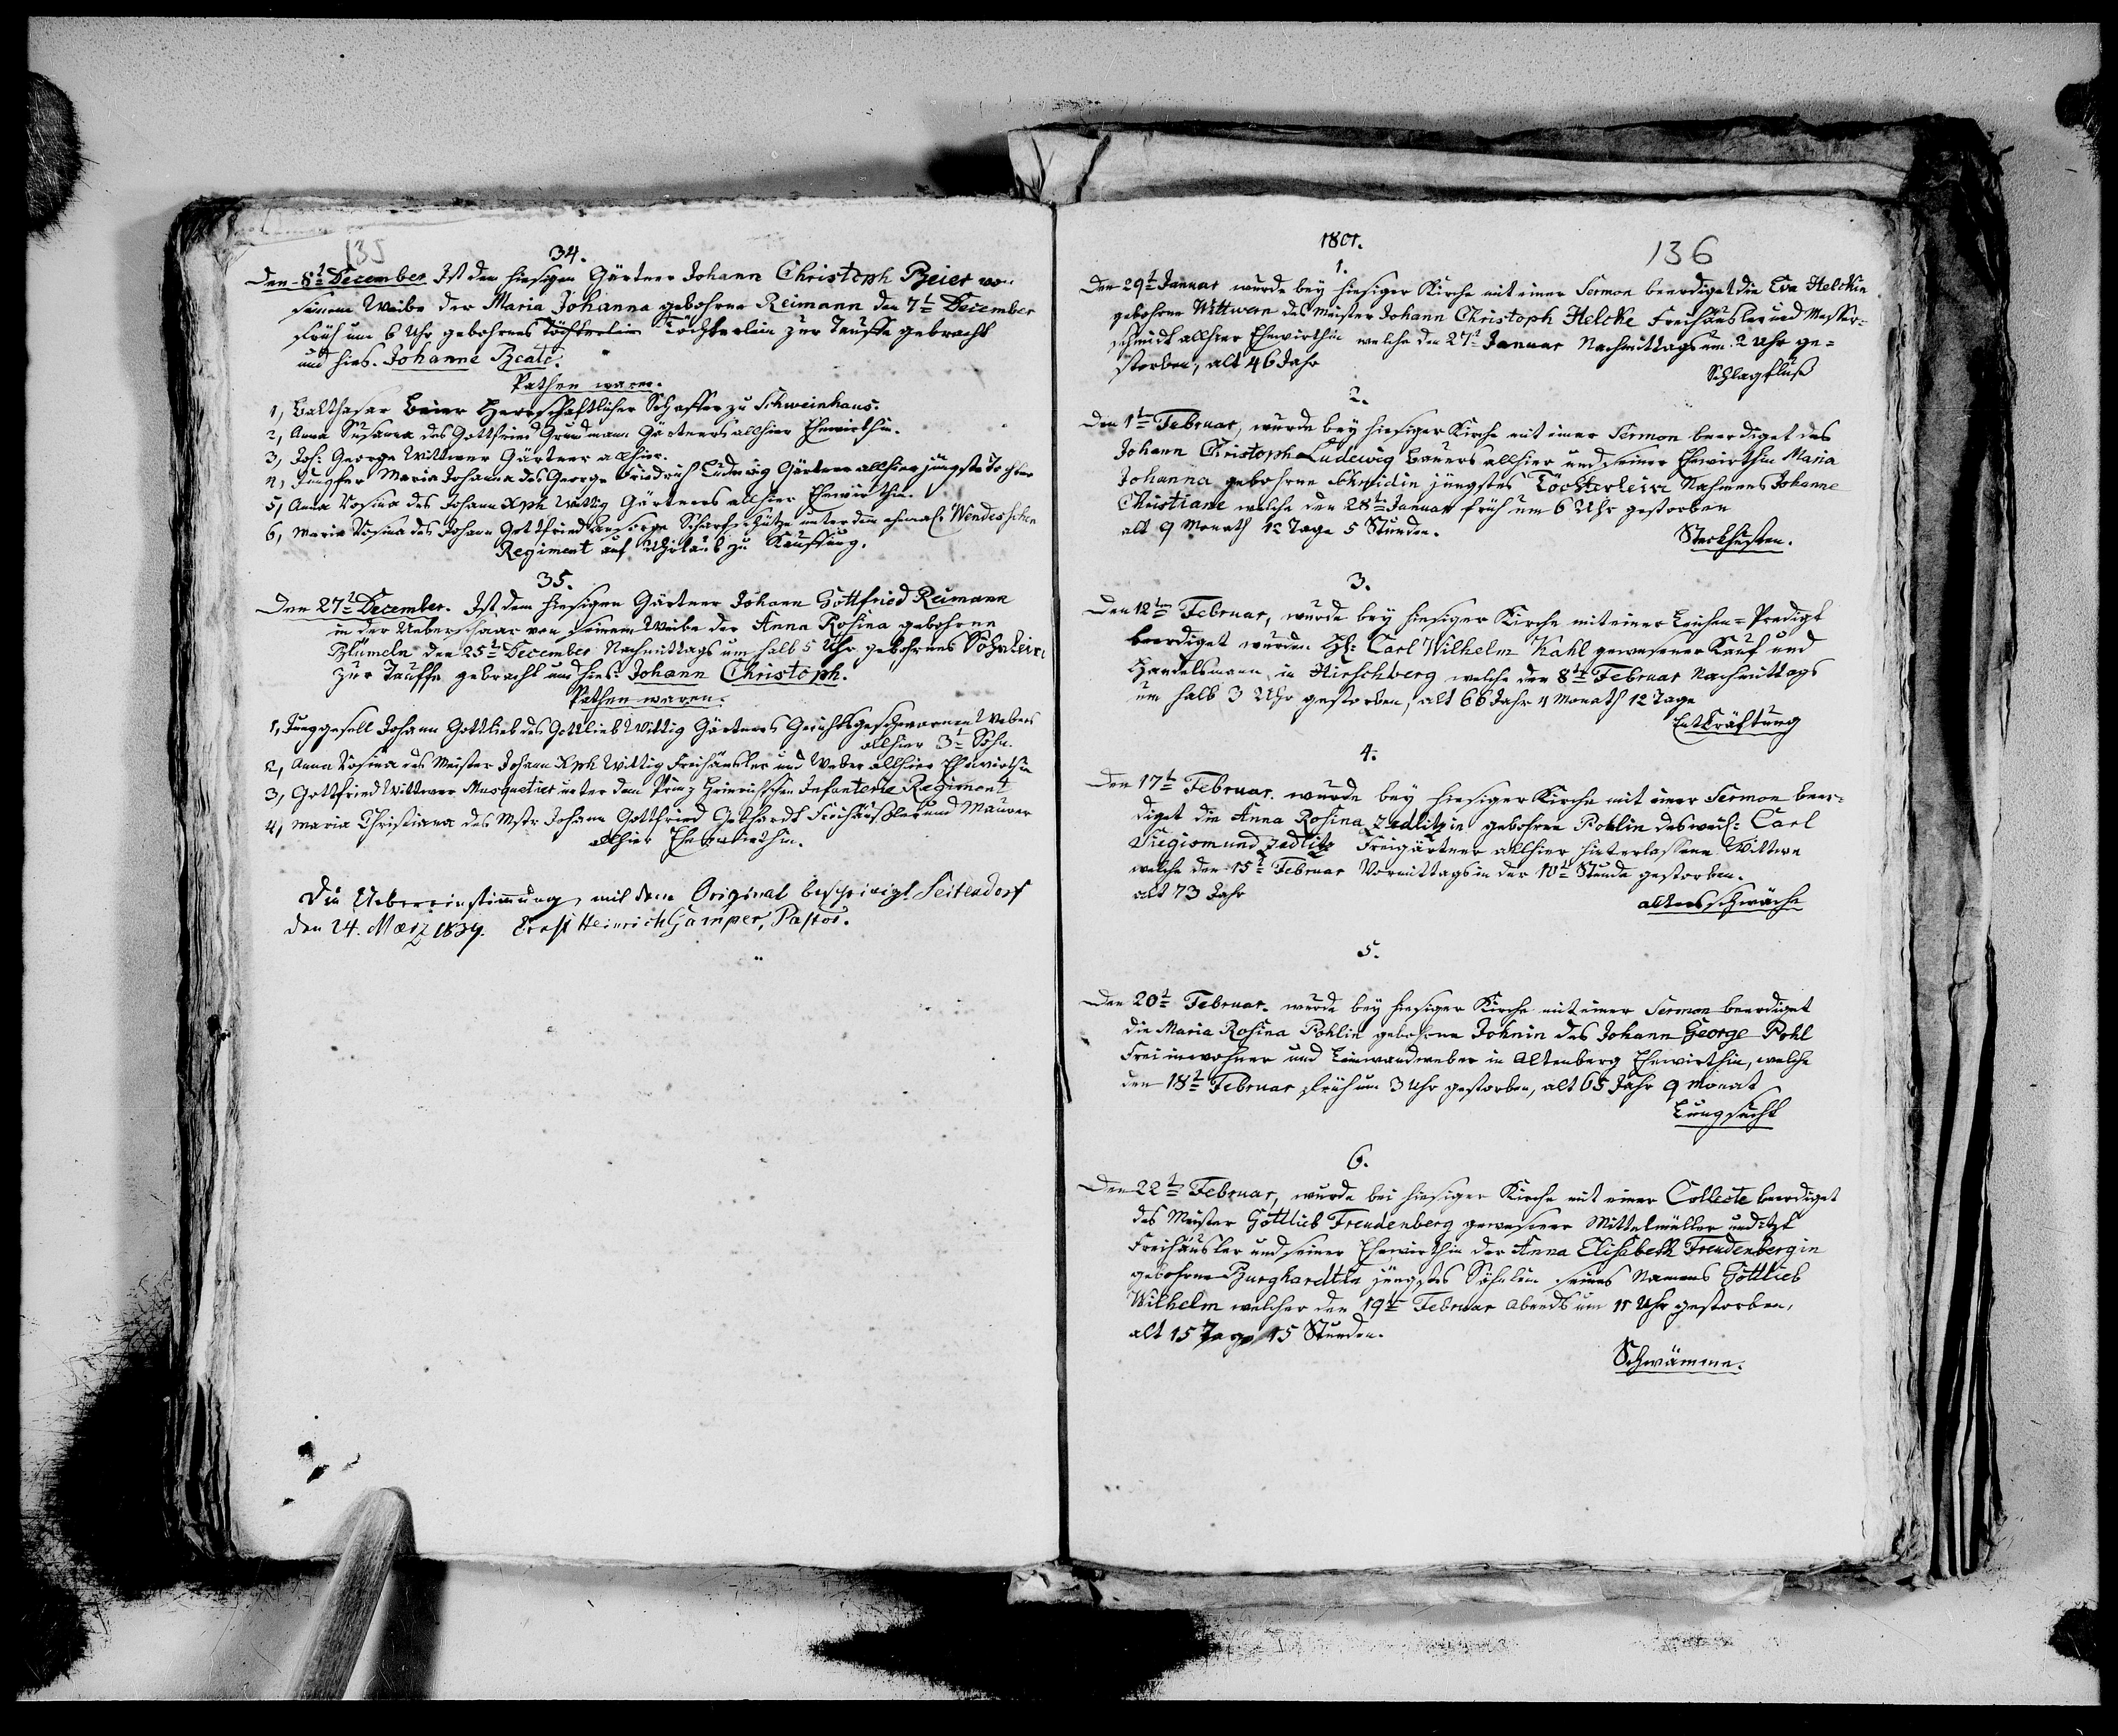 135
34.
Den 8t December Ist dem hiesigen Gärtner Johann Christoph Beier von
seinem Weibe der Maria Johanna gebohrne Reimann den 7t December
früh um 6 Uhr gebohrnes Töchterlein zur Tauffe gebracht
und hies. Johanne Beate.
Pathen waren.
1, Balthasar Beier Herrschaftlicher Schaffer zu Schweinhaus.
2, Anna Susanna des Gottfried Grundmann Gärtners allhier Ehewirthin.
3, Joh: George Wittwer Gärtner allhier.
4, Jungfer Maria Johanna des George Friedrich Ludewig Gärtner allhier jüngste Tochter
5, Anna Rosina des Johann Xph Wittig Gärtners allhier Ehewirthin.
6, Maria Rosina des Johann Gottfried Scharfschütze unter dem ehmal: Wendesschen
Regiment auf Uhrlaub zu Kauffung.
35.
Den 27t December. Ist dem hiesigen Gärtner Johann Gottfried Reimann
in der Ueberschaar von seinem Weibe der Anna Rosina gebohrne
Blümeln den 25t December Nachmittags um halb 5 Uhr gebohrnes Söhnlein
zur Tauffe gebracht und hies: Johann Christoph.
Pathen waren.
1, Junggesell Johann Gottlieb des Gottlieb Wittig Gärtners Gerichtsgeschwornen Webers
allhier 3t Sohn.
2, Anna Rosina des Meister Johann Xph Wittig Freihäusler und Weber allhier Ehewirthin
3, Gottfried Wittwer Musquetier unter dem Prinz Heinrichschen Infanterie Regiment
4, Maria Christiana des Mstr Johann Gottfried Gebhardt Freihäusler und Maurer
allhier Ehewirthin.
Die Uebereinstimmung mit dem Original bescheinigt Seitendorf
den 24. März 1839. Ernst Heinrich Gamper, Pastor.
136
1801.
1.
Den 29t Januar wurde bey hiesiger Kirche mit einer Sermon beerdiget die Eva Helckin
gebohrne Wittwern des Meister Johann Christoph Helcke Freihäusler und Messer=
schmidt allhier Ehewirthin welche den 27t Januar Nachmittags um 2 Uhr ge=
storben, alt 46 Jahr
Schlagfluß
2.
Den 1t Februar, wurde bey hiesiger Kirche mit einer Sermon beerdiget des
Johann Christoph Ludewig Bauers allhier und seiner Ehewirthin Maria
Johanna gebohrne jüngstes Töchterlein Nahmens Johanne
Christiane welche den 28t Januar früh um 6 Uhr gestorben
alt 9 Monath 12 Tage 5 Stunden.
Steckhusten.
3.
Den 12ten Februar, wurde bey hiesiger Kirche mit einer Leichen=Predigt
beerdiget wurden H: Carl Wilhelm Kahl gewesener Kauf und
Handelsmann in Hirschberg welche den 8t Februar Nachmittags
um halb 3 Uhr gestorben, alt 66 Jahr 4 Monath 12 Tage
Entkräftung
4.
Den 17t Februar. wurde bey hiesiger Kirche mit einer Sermon beer=
diget die Anna Rosina Zedlitzin gebohrne Pohlin des weil: Carl
Siegismund Zedlitz Freigärtner allhier hinterlassene Wittwe
welche den 15t Februar Vormittags in der 10t Stunde gestorben.
alt 73 Jahr
Altersschwäche
5.
Den 20t Februar. wurde bey hiesiger Kirche mit einer Sermon beerdiget
die Maria Rosina Pohlin gebohrne Johnin des Johann George Pohl
Freiinwohner und Leinwandweber in Altenberg Ehewirthin, welche
den 18t Februar früh um 3 Uhr gestorben, alt 65 Jahr 9 Monat
Lungsucht
6.
Den 22t Februar, wurde bei hiesiger Kirche mit einer Collecte beerdiget
des Meister Gottlieb Freudenberg gewesener Mittelmüller und itzt
Freihäusler und seiner Ehewirthin der Anna Elisabeth Freudenbergin
gebohrne Burghardtin jüngstes Söhnlein seines Namens Gottlieb
Wilhelm welcher den 19t Februar Abends um 11 Uhr gestorben,
alt 15 Tage 15 Stunden.
Schwämme.